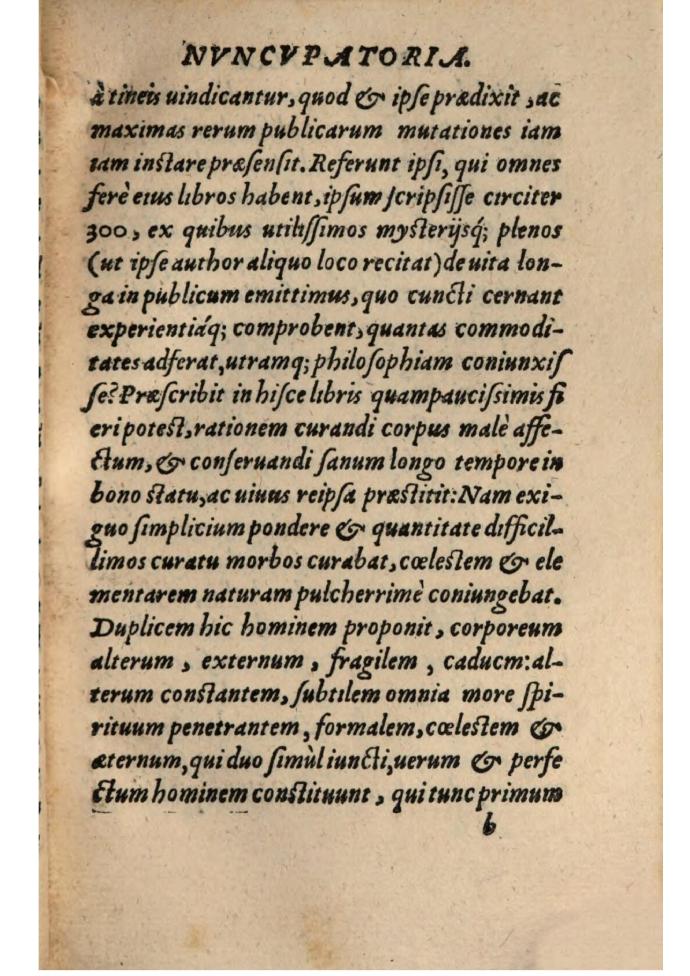 NVNCVPATORIA.
à tineis uindicantur, quod & ipse prædixit, ac
maximas rerum publicarum mutationes iam
iam instare præsensit. Referunt ipsi, qui omnes
ferè eius libros habent, ipsum scripsisse circiter
300, ex quibus utilissimos mysterijsq́; plenos
(ut ipse author aliquo loco recitat) de uita lon-
ga in publicum emittimus, quo cuncti cernant
experientiáq; comprobent, quantas commodi-
tates adferat, utramq; philosophiam coniunxis
se? Præscribit in hisce libris quampaucissimis fi
eri potest, rationem curandi corpus malè affe-
ctum, & conseruandi sanum longo tempore in
bono statu, ac uiuus reipsa præstitit: Nam exi-
guo simplicium pondere & quantitate difficil-
limos curatu morbos curabat, cœlestem & ele
mentarem naturam pulcherrimè coniungebat.
Duplicem hic hominem proponit, corporeum
alterum, externum, fragilem, caducm: al-
terum constantem, subtilem omnia more spi-
rituum penetrantem, formalem, cœlestem &
æternum, qui duo simùl iuncti, uerum & perfe
ctum hominem constituunt, qui tunc primum
b